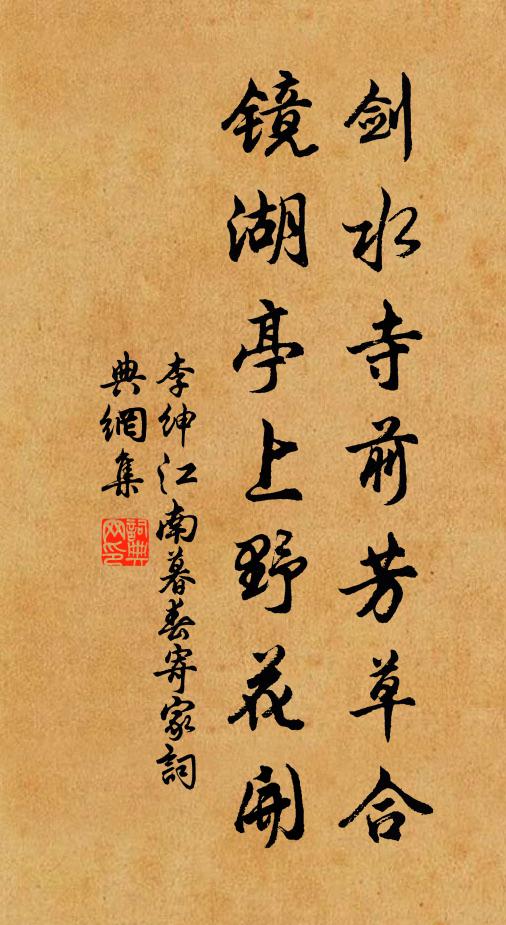 剑水寺前芳草合
镜湖亭上野花開
李绅江南暮春寄家詞
典網集
詞典
网印